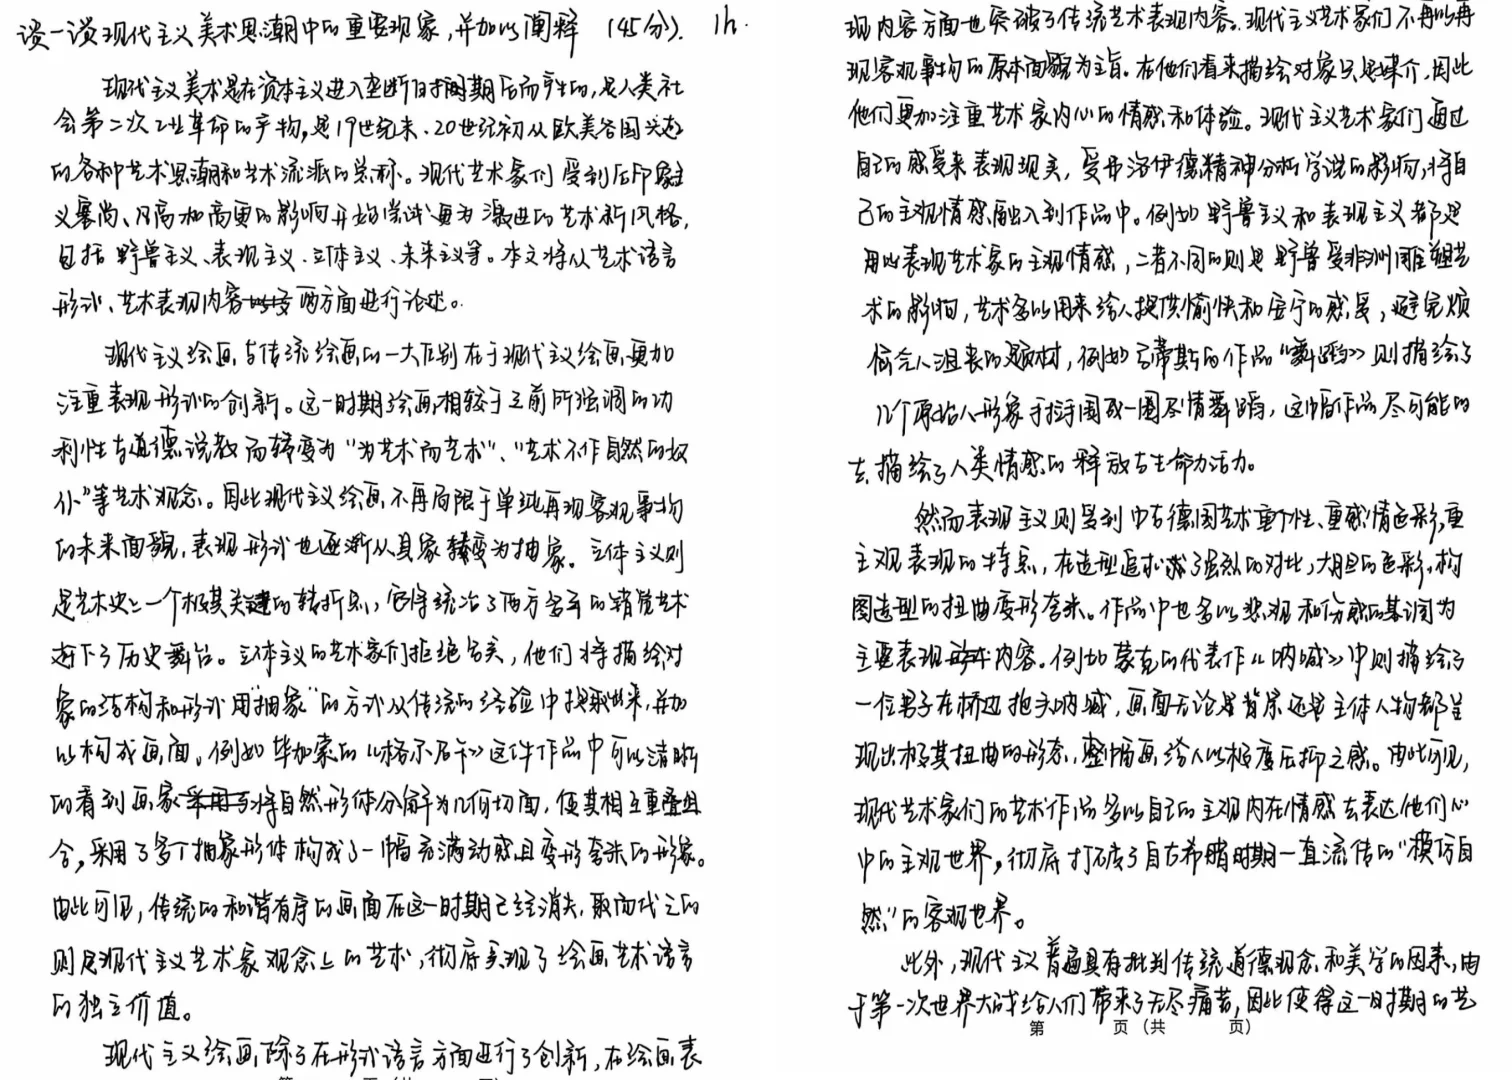 谈一谈现代主义美术思潮中的重要现象,并加以阐释 (45分). 1h.
现代主义美术是在资本主义进入垄断时期后而产生的,是人类社
会第二次工业革命的产物,是19世纪末、20世纪初从欧美各国兴起
的各种艺术思潮和艺术流派的总称。现代艺术家们受到后印象主
义塞尚、凡高和高更的影响开始尝试更为激进的艺术新风格,
包括野兽主义、表现主义、立体主义、未来主义等。本文将从艺术语言
形式、艺术表现内容两方面进行论述。
现代主义绘画与传统绘画的一大区别在于现代主义绘画更加
注重表现形式的创新。这一时期绘画相较于之前所强调的功
利性与道德说教而转变为“为艺术而艺术”、“艺术不作自然的奴
仆”等艺术观念。因此现代主义绘画不再局限于单纯再现客观事物
的本来面貌,表现形式也逐渐从具象转变为抽象。立体主义则
是艺术史上一个极其关键的转折点,它将统治了两万多年的错觉艺术
赶下了历史舞台。立体主义的艺术家们拒绝写实,他们将描绘对
象的结构和形式用“抽象”的方式从传统的经验中提取出来,并加
以构成画面。例如毕加索的《格尔尼卡》这件作品中可以清晰
的看到画家将自然形体分解为几何切面,使其相互重叠组
合,采用了多个抽象形体构成了一幅充满动感且变形夸张的形象。
由此可见,传统的和谐有序的画面在这一时期已经消失,取而代之的
则是现代主义艺术家观念上的艺术,彻底实现了绘画艺术语言
的独立价值。
现代主义绘画除了在形式语言方面进行了创新,在绘画表
现内容方面也突破了传统艺术表现内容。现代主义艺术家们不再以再
现客观事物的原本面貌为主旨。在他们看来描绘对象只是媒介,因此
他们更加注重艺术家内心的情感和体验。现代主义艺术家们通过
自己的感受来表现现实,受弗洛伊德精神分析学说的影响,将自
己的主观情感融入到作品中。例如野兽主义和表现主义都是
用以表现艺术家的主观情感,二者不同的则是野兽受非洲雕塑艺
术的影响,艺术多以用来给人提供愉快和安宁的感受,避免烦
恼令人沮丧的题材,例如马蒂斯的作品《舞蹈》则描绘了
几个原始人形象手拉手围成一圈尽情舞蹈,这幅作品尽可能的
去描绘了人类情感的释放与生命力活力。
然而表现主义则受到中古德国艺术重个性、重感情色彩,重
主观表现的特点,在造型追求强烈的对比,大胆的色彩、构
图造型的扭曲变形夸张。作品中也多以悲观和伤感的基调为
主要表现内容。例如蒙克的代表作《呐喊》中则描绘了
一位男子在桥边抱头呐喊,画面无论是背景还是主体人物都呈
现出极其扭曲的形态,整幅画给人以极度压抑之感。由此可见,
现代艺术家们的艺术作品多以自己的主观内在情感去表达他们心
中的主观世界,彻底打破了自古希腊时期一直流传的“模仿自
然”的客观世界。
此外,现代主义普遍具有批判传统道德观念和美学的因素,由
于第一次世界大战给人们带来了无尽痛苦,因此使得这一时期的艺
第 页(共 页)